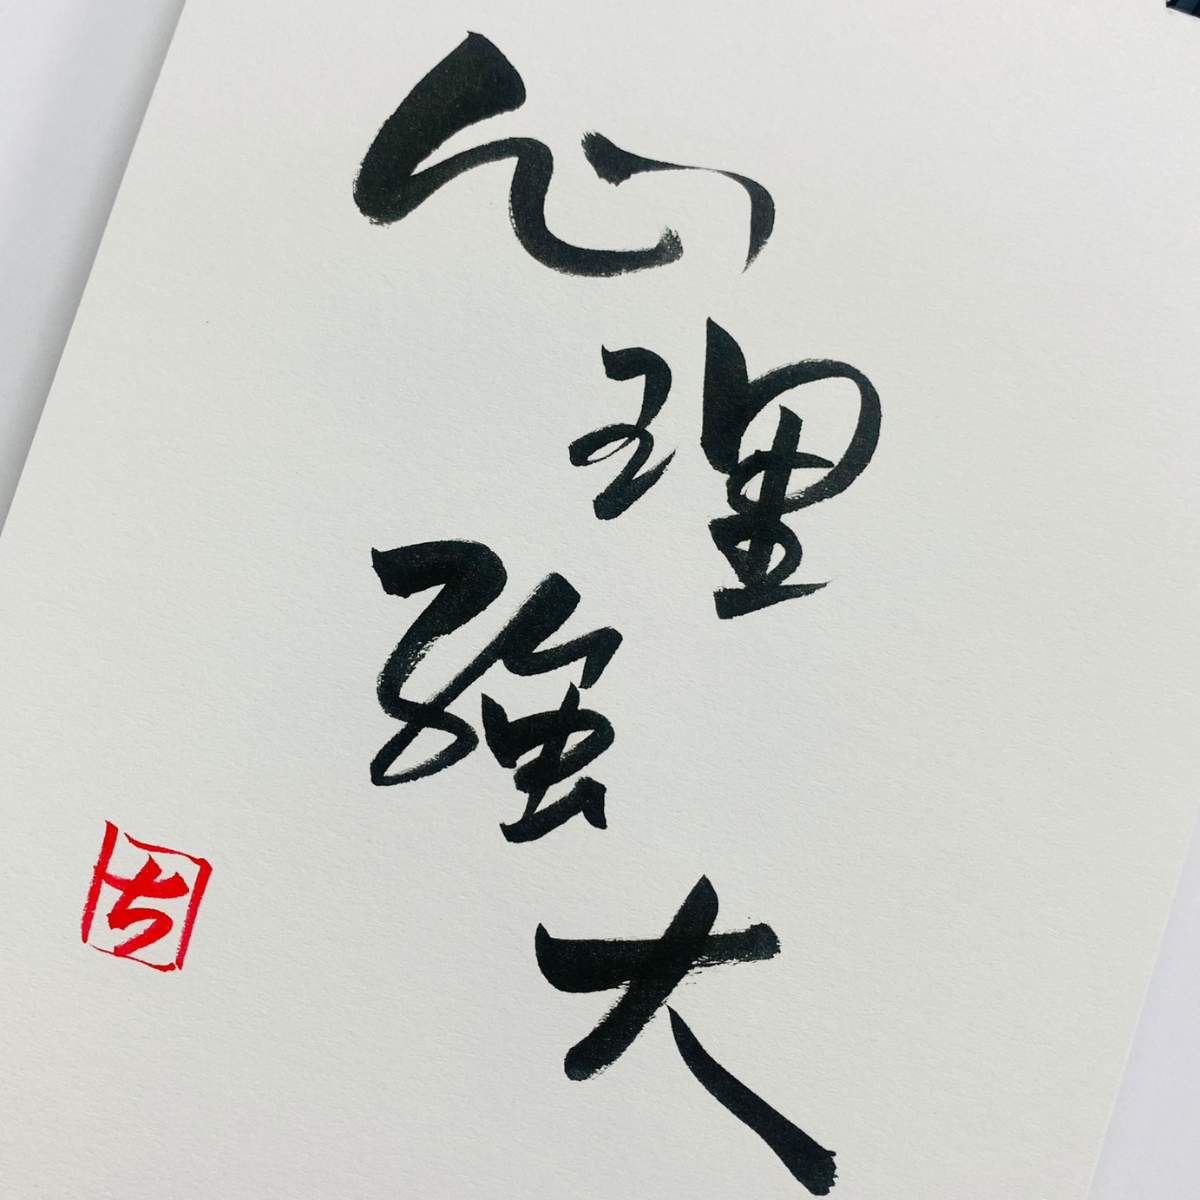 心理強大
ち